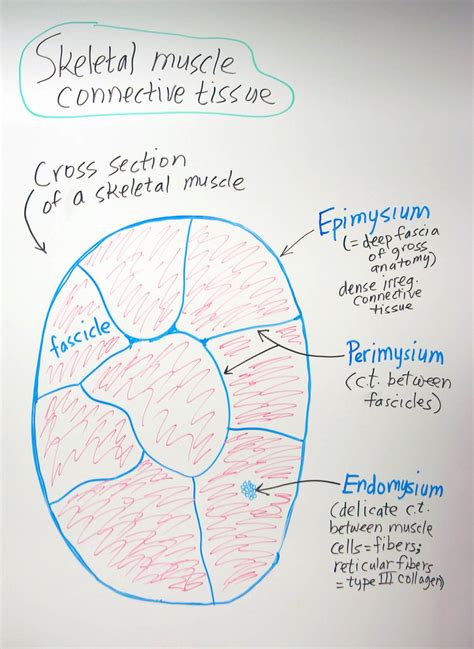 Skeletal muscle
connective tissue
Cross section
of a skeletal muscle
Epimysium
(= deep fascia
of gross
anatomy)
dense irreg.
connective
tissue
fascicle
Perimysium
(c.t. between
fascicles)
Endomysium
(delicate c.t.
between muscle
cells = fibers;
reticular fibers
= type III collagen)